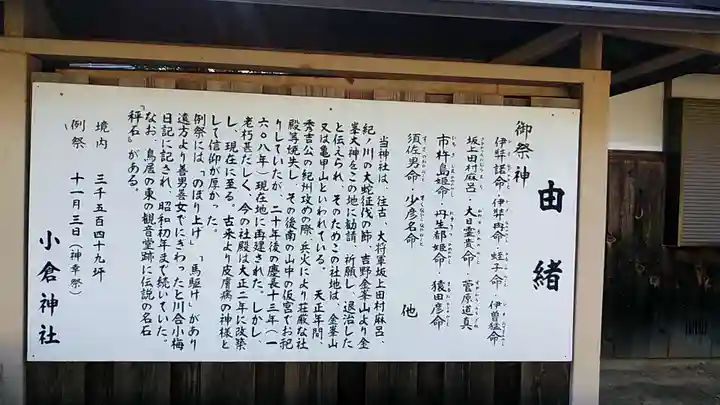 由緒
御祭神
伊弉諾命・伊弉冉命・蛭子命・伊曽猛命
坂上田村麻呂・大日霊貴命・菅原道真
市杵島姫命・丹生都姫命・猿田彦命
須佐男命・少彦名命　他
当神社は、往古、大将軍坂上田村麻呂、
紀ノ川の大蛇征伐の節、吉野金峯山より金
峯大神をこの地に勧請、祈願し、退治した
と伝えられ、そのためこの社地は、金峯山
又は亀甲山といわれている。天正年間、
秀吉公の紀州攻めの際、兵火により荘厳な社
殿等焼失し、その後南の山中の仮宮でお祀
りしていたが、二十年後の慶長十三年（一
六〇八年）現在地に再建された。しかし、
老朽甚だしく、今の社殿は大正二年に改築
し、現在に至る。古来より皮膚病の神様と
して信仰が厚かった。
例祭には「のぼり上げ」「馬駆け」があり
遠方より善男善女でにぎわったと川合小梅
日記に記され、昭和初年まで続いていた。
なお、鳥居の東の観音堂跡に伝説の名石
「秤石」がある。
境内　三千五百四十九坪
例祭　十一月三日（神幸祭）
小倉神社